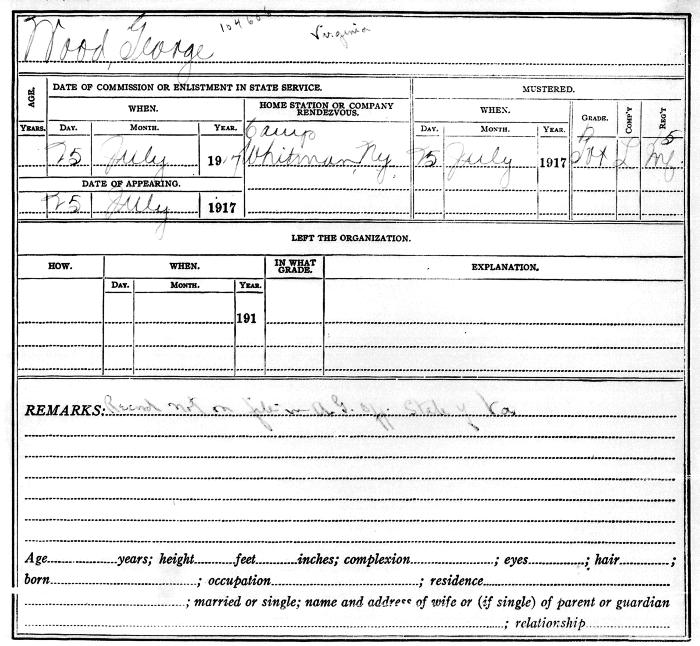 104606
Virginia
Wood, George
AGE.
DATE OF COMMISSION OR ENLISTMENT IN STATE SERVICE.
MUSTERED.
WHEN.
HOME STATION OR COMPANY RENDEZVOUS.
WHEN.
GRADE.
COMP'Y
REG'T
YEARS.
DAY.
MONTH.
YEAR.
DAY.
MONTH.
YEAR.
25 July 1917
Camp
Whitman, Ny
25 July 1917
Pvt L 5
Inf.
DATE OF APPEARING.
25 July 1917
LEFT THE ORGANIZATION.
HOW.
WHEN.
IN WHAT GRADE.
EXPLANATION.
DAY.
MONTH.
YEAR.
191
REMARKS: Record not on file in A.G. Off. State of Va
Age years; height feet inches; complexion ; eyes ; hair ;
born ; occupation ; residence
; married or single; name and address of wife or (if single) of parent or guardian
; relationship